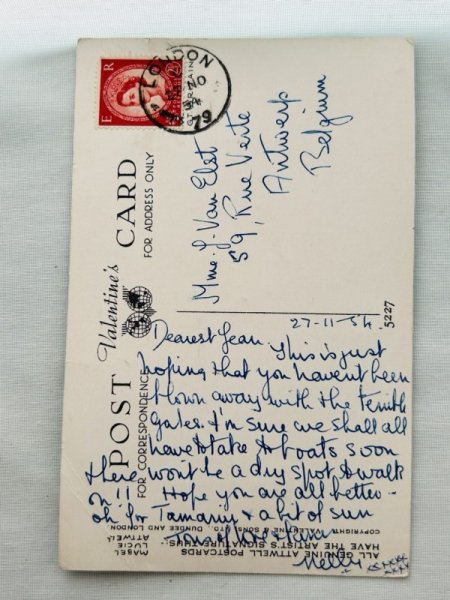 E R
LONDON
79
POST CARD
Valentine's
FOR CORRESPONDENCE
FOR ADDRESS ONLY
Mme. J. Van Elst
59, Rue Verte
Antwerp
Belgium
5227
27-11-54
Dearest Jean. This is just
hoping that you haven't been
blown away with the
gales. I'm sure we shall all
have to take to boats soon
there won't be a dry spot to walk
on!! Hope you are all better -
oh for Tamariu & a bit of sun
Tons of love &
Nelly
xxxxxx
xxxx
COPYRIGHT. VALENTINE & SONS LTD. DUNDEE AND LONDON
ALL GENUINE ATTWELL POSTCARDS
HAVE THE ARTIST'S SIGNATURE THUS:-
MABEL
LUCIE
ATTWELL